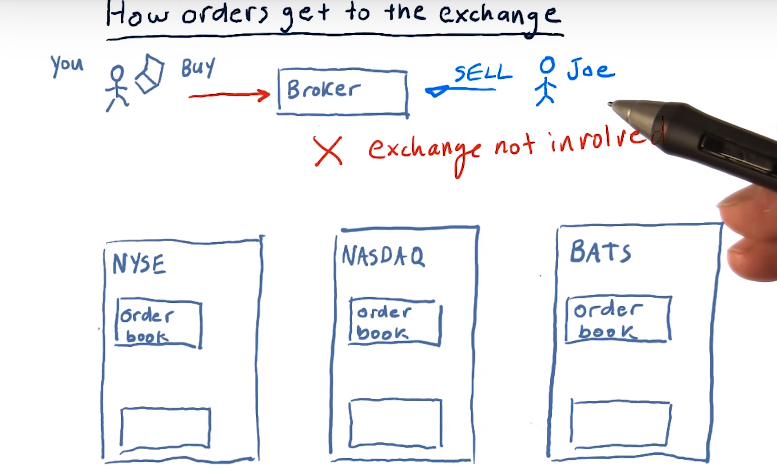 How orders get to the exchange
You
BUY
Broker
SELL
Joe
X exchange not involved
NYSE
order
book
NASDAQ
order
book
BATS
order
book